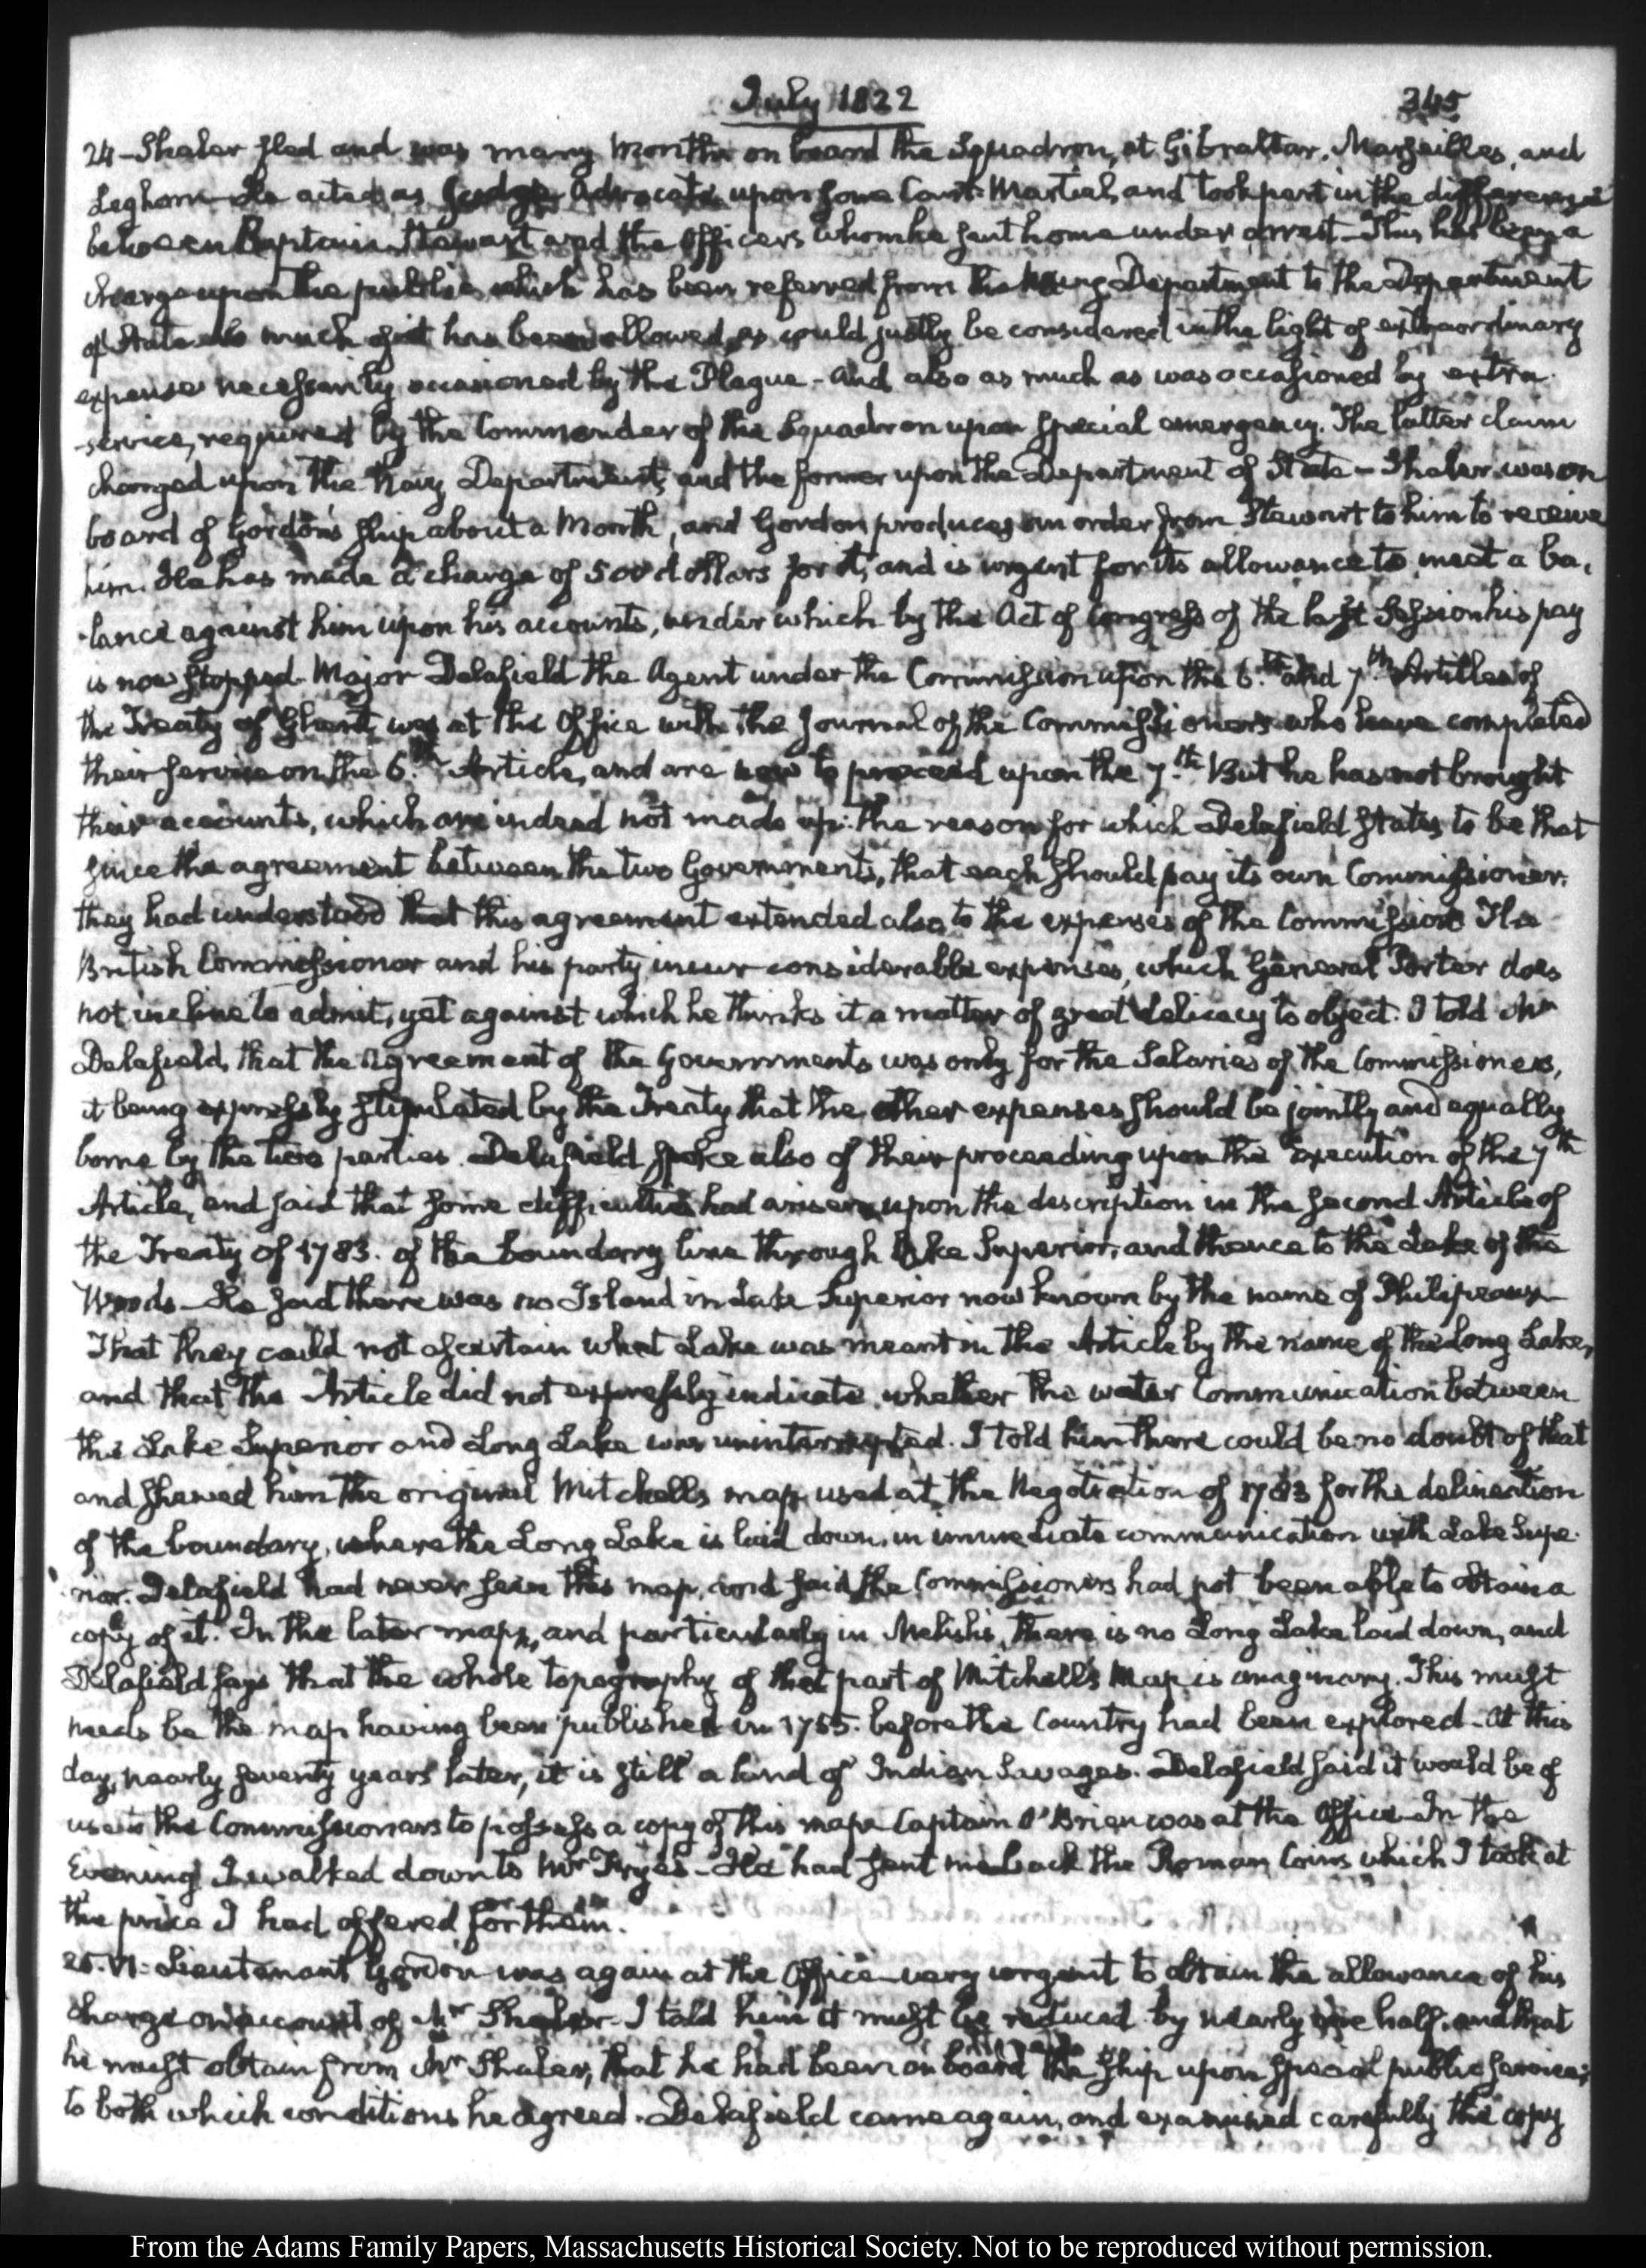 July 1822
345
24 – Shaler fled and was many Months on board the Squadron, at Gibraltar, Marseilles, and
Leghorn – He acted as Judge Advocate upon some Court Martial, and took part in the differences
between Captain Stewart and the Officers whom he sent home under arrest – This has been a
charge upon the public which has been referred from the Navy Department to the Department
of State – So much of it has been allowed, as could justly be considered in the light of extraordinary
expense necessarily occasioned by the Plague – And also as much as was occasioned by extra
-service, required by the Commander of the Squadron upon special emergency. The latter claim
charged upon the Navy Department, and the former upon the Department of State – Shaler was on
board of Gordon's ship about a Month, and Gordon produces an order from Stewart to him to receive
him. He has made a charge of 500 dollars for it, and is urgent for its allowance to meet a ba-
-lance against him upon his accounts, under which by the Act of Congress of the last Session his pay
is now stopped. Major Delafield the Agent under the Commission upon the 6.th and 7.th Articles of
the Treaty of Ghent, was at the Office with the Journal of the Commissioners who have completed
their service on the 6.th Article, and are now to proceed upon the 7.th But he has not brought
their accounts, which are indeed not made up: the reason for which Delafield states to be that
since the agreement between the two Governments, that each should pay its own Commissioner,
they had understood that this agreement extended also to the expenses of the Commission The
British Commissioner and his party incur considerable expenses, which General Porter does
not incline to admit, yet against which he thinks it a matter of great delicacy to object. I told Mr
Delafield, that the agreement of the Governments was only for the Salaries of the Commissioners,
it being expressly stipulated by the Treaty that the other expenses should be jointly and equally
borne by the two parties. Delafield spoke also of their proceeding upon the execution of the 7th
Article, and said that some difficulties had arisen upon the description in the second Article of
the Treaty of 1783. of the boundary line through Lake Superior, and thence to the Lake of the
Woods – He said there was no Island in Lake Superior now known by the name of Philipeaux –
That they could not ascertain what Lake was meant in the Article by the name of the Long Lake,
and that the Article did not expressly indicate, whether the water Communication between
the Lake Superior and Long Lake was uninterrupted. I told him there could be no doubt of that
and shewed him the original Mitchell's map, used at the Negotiation of 1783 for the delineation
of the boundary, where the Long Lake is laid down, in immediate communication with Lake Supe-
-rior. Delafield had never seen this map, and said the Commissioners had not been able to obtain a
copy of it. In the later maps, and particularly in Melish's, there is no Long Lake laid down, and
Delafield says that the whole topography of that part of Mitchell's Map is imaginary. This must
needs be the map having been published in 1755. before the Country had been explored – At this
day, nearly seventy years later, it is still a land of Indian Savages. Delafield said it would be of
use to the Commissioners to possess a copy of this map. Captain O'Brien was at the Office – In the
Evening I walked down to Mr Frye's – He had sent me back the Roman Coins which I took at
the price I had offered for them.
25. VI. Lieutenant Gordon was again at the Office – very urgent to obtain the allowance of his
charge on account of Mr Shaler – I told him it must be reduced by nearly one half, and that
he must obtain from Mr Shaler, that he had been on board the ship upon special public service;
to both which conditions he agreed. Delafield came again, and examined carefully the copy
From the Adams Family Papers, Massachusetts Historical Society. Not to be reproduced without permission.